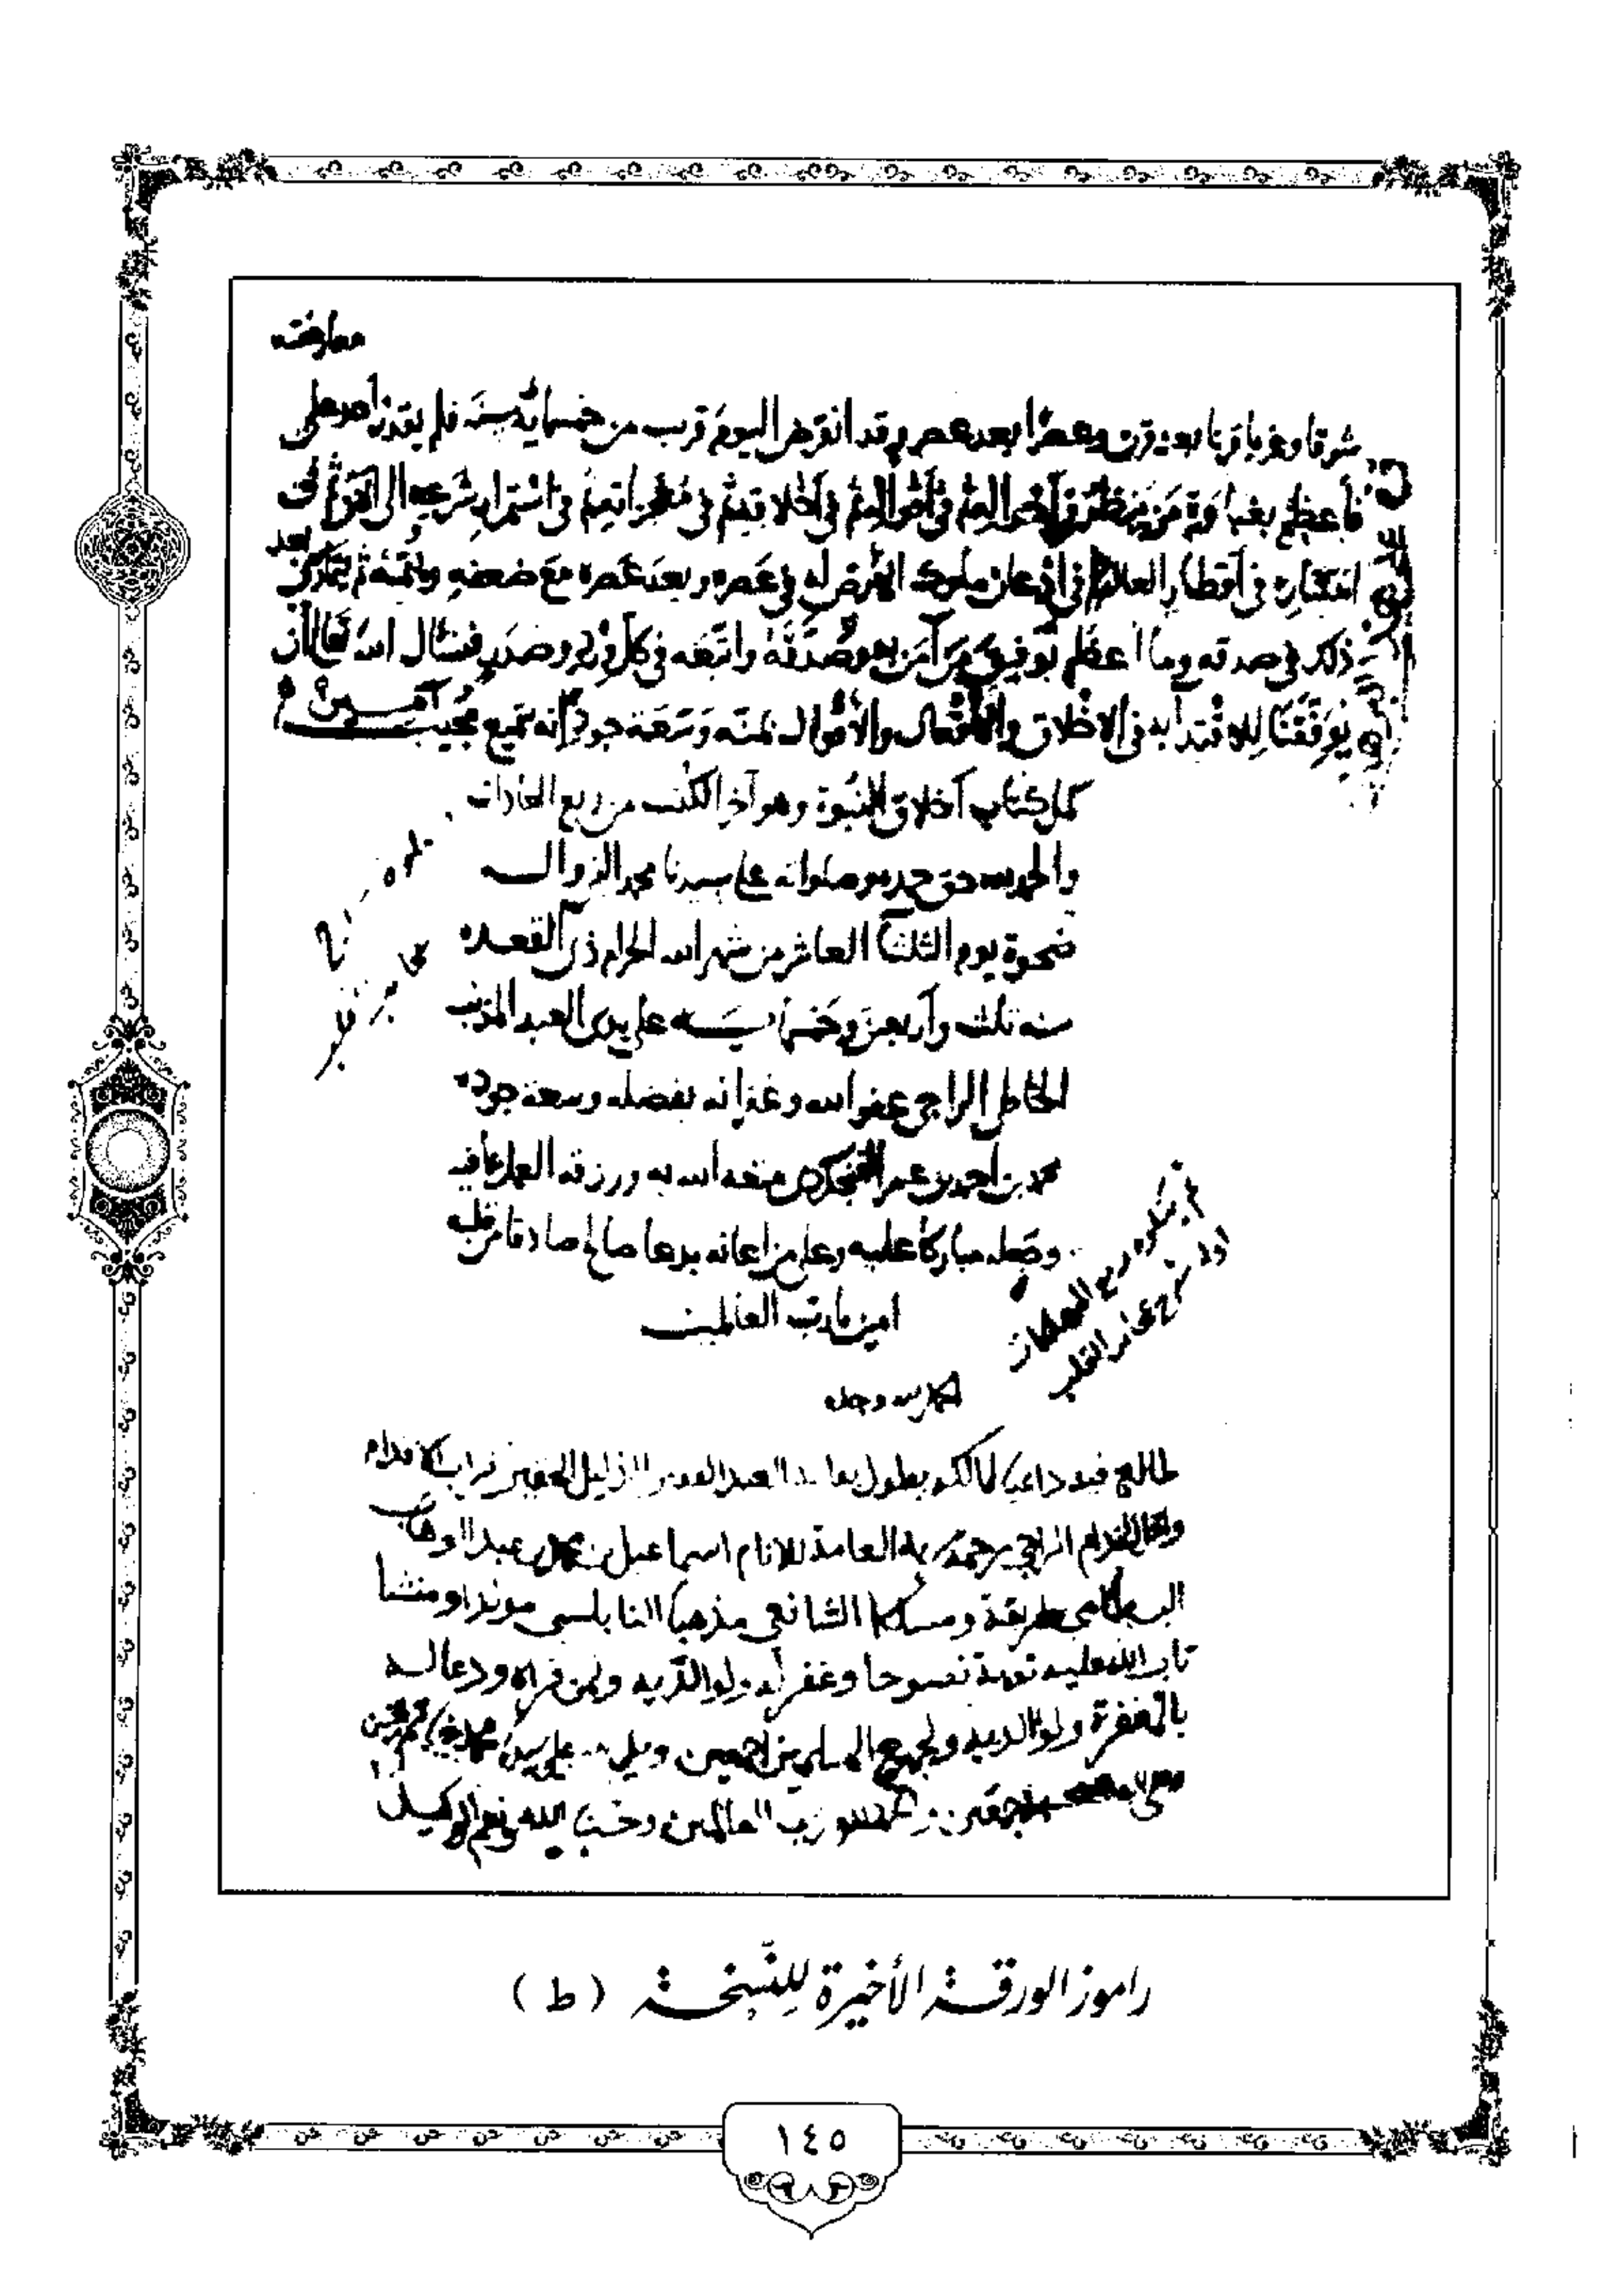 معارضته
شرقا وغربا قرنا بعد قرن وعصرا بعد عصر وقد انقرض اليوم قريب من خمسمائة سنة فلم يقدر احد على
فأعظم بغباوة من ينظر في أحواله ثم في أقواله ثم في أخلاقه ثم في معجزاته ثم في استمرار شرعه الى الآن ثم في
انتشاره في أقطار العالم ثم في اذعان ملوك الأرض له في عصره وبعد عصره مع ضعفه ويتمه ثم يتمارى بعد
ذلك في صدقه وما أعظم توفيق من آمن به وصدقه واتبعه في كل ورد وصدر فنسأل الله تعالى أن
يوفقنا للاقتداء به في الاخلاق والأفعال والأقوال بمنه وسعة جوده إنه سميع مجيب آمين
كمل كتاب أخلاق النبوة وهو آخر الكتب من ربع العادات
والحمد لله حق حمده وصلواته على سيدنا محمد النبي وآله
ضحوة يوم الثلثا العاشر من شهر الله الحرام ذي القعده
سنه ثلث وأربعين وخمسمايه على يدي العبد المذنب
الخاطئ الراجي عفو الله وغفرانه بفضله وسعة جوده
محمد بن احمد بن عمر متعه الله به ورزقه العمل بما فيه
وجعله مباركا عليه وعلى من اعانه بدعا صالح صادقا من قلبه
امين يا رب العالمين
الحمد لله وحده
طالع فيه داعيا لمالكه بطول بقا العبد الفقير الذليل الحقير تراب الاقدام
الراجي رحمة ربه العامة للانام اسماعيل بن محمد بن عبد الوهاب
طريقة ومسلكا الشافعي مذهبا النابلسي مولدا ومنشا
تاب الله عليه توبة نصوحا وغفر له ولوالديه ولمن قراه ودعا له
بالمغفرة ولوالديه ولجميع المسلمين اجمعين وصلى الله على سيدنا محمد
اجمعين والحمد لله رب العالمين وحسبنا الله ونعم الوكيل
راموز الورقة الأخيرة للنّسخة (ط)
١٤٥